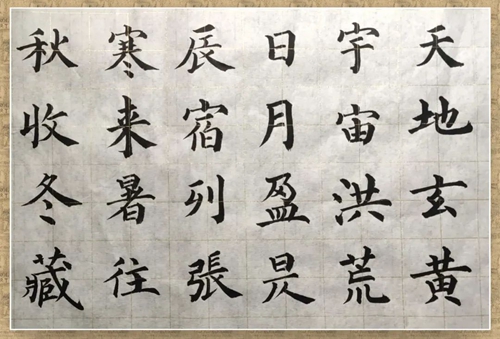 天地玄黄
宇宙洪荒
日月盈昃
辰宿列張
寒来暑往
秋收冬藏